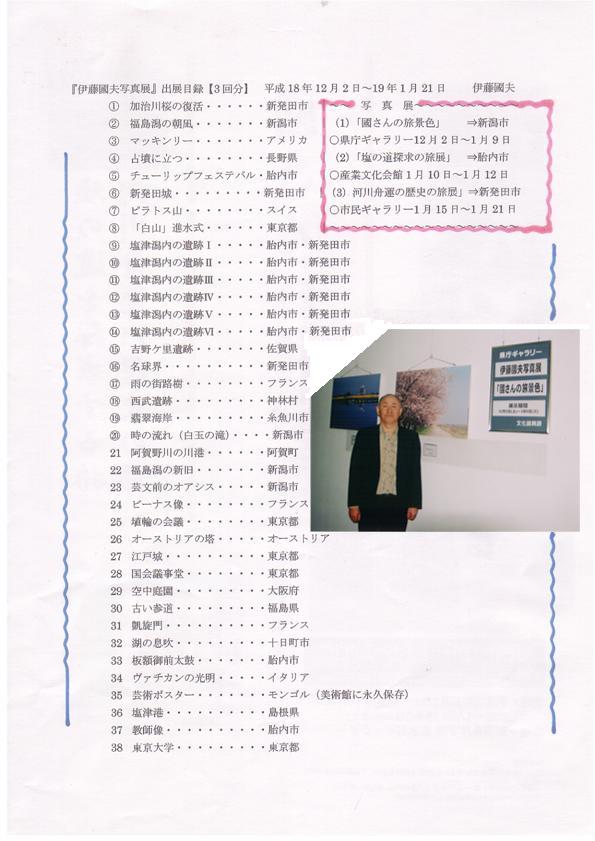 『伊藤國夫写真展』出展目録【3回分】　平成18年12月2日～19年1月21日　　伊藤國夫
① 加治川桜の復活・・・・・・新発田市
② 福島潟の朝凪・・・・・・・新潟市
③ マッキンリー・・・・・・・アメリカ
④ 古墳に立つ・・・・・・・・長野県
⑤ チューリップフェステバル・胎内市
⑥ 新発田城・・・・・・・・・新発田市
⑦ ピラトス山・・・・・・・・スイス
⑧ 「白山」進水式・・・・・・東京都
⑨ 塩津潟内の遺跡Ⅰ・・・・・胎内市・新発田市
⑩ 塩津潟内の遺跡Ⅱ・・・・・胎内市・新発田市
⑪ 塩津潟内の遺跡Ⅲ・・・・・胎内市・新発田市
⑫ 塩津潟内の遺跡Ⅳ・・・・・胎内市・新発田市
⑬ 塩津潟内の遺跡Ⅴ・・・・・胎内市・新発田市
⑭ 塩津潟内の遺跡Ⅵ・・・・・胎内市・新発田市
⑮ 吉野ケ里遺跡・・・・・・・佐賀県
⑯ 名球界・・・・・・・・・・新発田市
⑰ 雨の街路樹・・・・・・・・フランス
⑱ 西武遺跡・・・・・・・・・神林村
⑲ 翡翠海岸・・・・・・・・・糸魚川市
⑳ 時の流れ（白玉の滝）・・・・新潟市
21 阿賀野川の川港・・・・・・阿賀町
22 福島潟の新旧・・・・・・・新潟市
23 芸文前のオアシス・・・・・新潟市
24 ビーナス像・・・・・・・・フランス
25 埴輪の会議・・・・・・・・東京都
26 オーストリアの塔・・・・・オーストリア
27 江戸城・・・・・・・・・・東京都
28 国会議事堂・・・・・・・・東京都
29 空中庭園・・・・・・・・・大阪府
30 古い参道・・・・・・・・・福島県
31 凱旋門・・・・・・・・・・フランス
32 湖の息吹・・・・・・・・・十日町市
33 板額御前太鼓・・・・・・・胎内市
34 ヴァチカンの光明・・・・・イタリア
35 芸術ポスター・・・・・・・モンゴル（美術館に永久保存）
36 塩津港・・・・・・・・・・島根県
37 教師像・・・・・・・・・・胎内市
38 東京大学・・・・・・・・・東京都
写　真　展
(1)「國さんの旅景色」　⇒新潟市
○県庁ギャラリー12月2日～1月9日
(2)「塩の道探求の旅展」　⇒胎内市
○産業文化会館1月10日～1月12日
(3) 河川舟運の歴史の旅展」⇒新発田市
○市民ギャラリー1月15日～1月21日
県庁ギャラリー
伊藤國夫写真展
「國さんの旅景色」